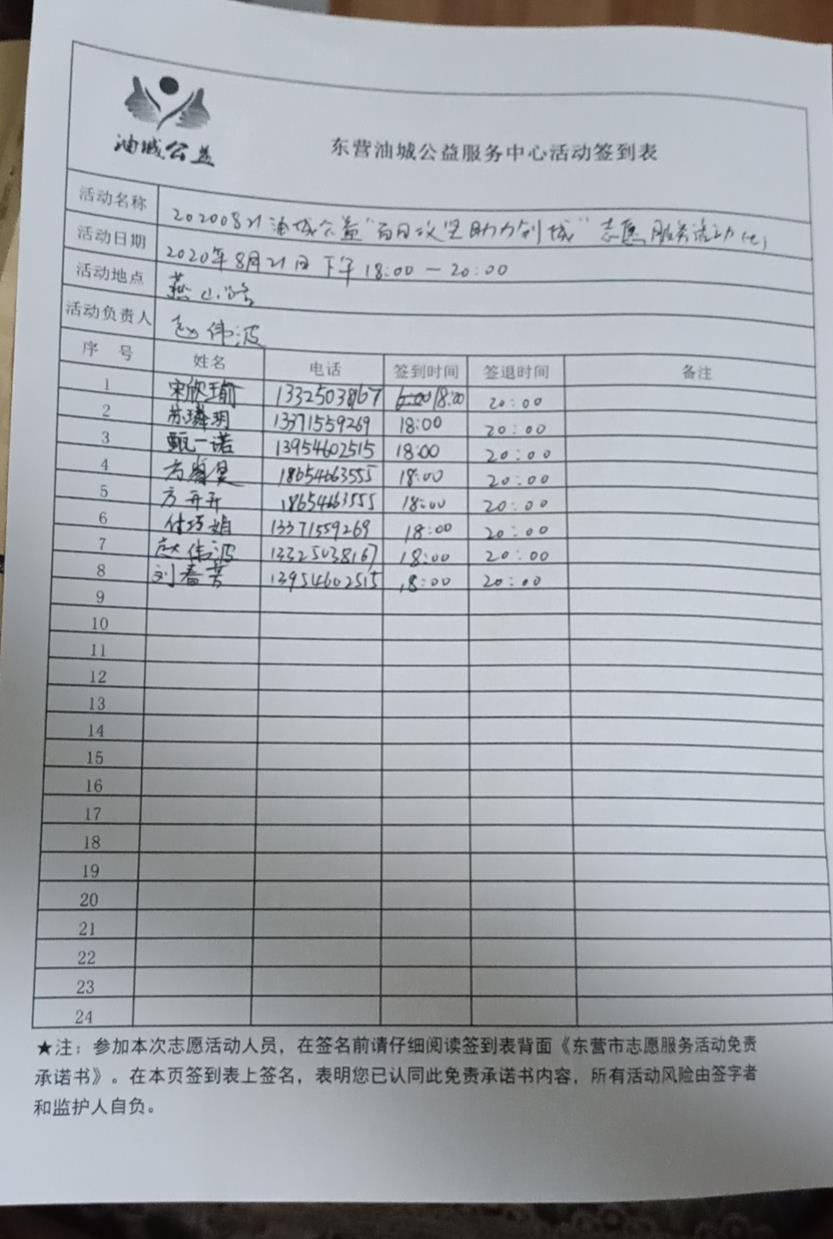 油城公益
东营油城公益服务中心活动签到表
活动名称 20200821油城公益"百日攻坚助力创城"志愿服务活动(七)
活动日期 2020年8月21日下午18:00-20:00
活动地点 燕山路
活动负责人 赵伟波
序号 姓名 电话 签到时间 签退时间 备注
1 宋欣瑜 13325038167 18:00 20:00
2 苏璘玥 13371559269 18:00 20:00
3 甄一诺 13954602515 18:00 20:00
4 18654663555 18:00 20:00
5 方开开 18654663555 18:00 20:00
6 付巧娟 13371559269 18:00 20:00
7 赵伟波 13325038167 18:00 20:00
8 刘春芳 13954602515 18:00 20:00
9
10
11
12
13
14
15
16
17
18
19
20
21
22
23
24
★注：参加本次志愿活动人员，在签名前请仔细阅读签到表背面《东营市志愿服务活动免责
承诺书》。在本页签到表上签名，表明您已认同此免责承诺书内容，所有活动风险由签字者
和监护人自负。